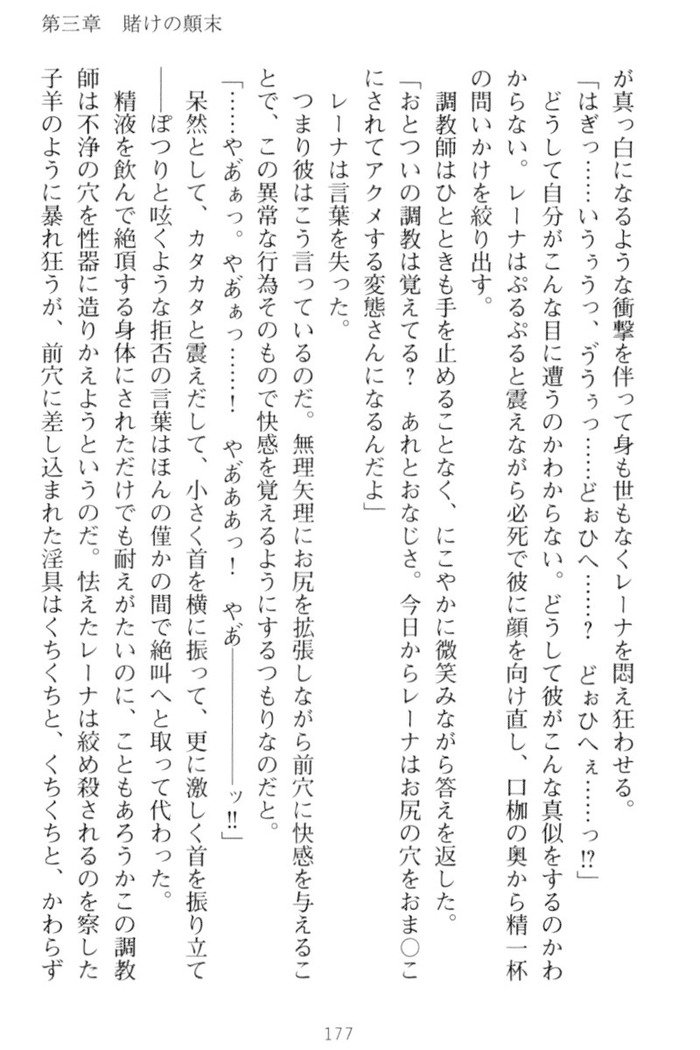 第三章　賭けの顛末
が真っ白になるような衝撃を伴って身も世もなくレーナを悶え狂わせる。
「はぎっ……いうぅうっ、ゔうぅっ……どぉひへ……？　どぉひへぇ……っ!?」
どうして自分がこんな目に遭うのかわからない。どうして彼がこんな真似をするのかわ
からない。レーナはぷるぷると震えながら必死で彼に顔を向け直し、口枷の奥から精一杯
の問いかけを絞り出す。
調教師はひとときも手を止めることなく、にこやかに微笑みながら答えを返した。
「おとついの調教は覚えてる？　あれとおなじさ。今日からレーナはお尻の穴をおま○こ
にされてアクメする変態さんになるんだよ」
レーナは言葉を失った。
つまり彼はこう言っているのだ。無理矢理にお尻を拡張しながら前穴に快感を与えるこ
とで、この異常な行為そのもので快感を覚えるようにするつもりなのだと。
「……やあ゙ぁっ。やあ゙ぁっ……！　やあ゙ああっ！　やあ゙――――――ッ!!」
呆然として、カタカタと震えだして、小さく首を横に振って、更に激しく首を振り立て
――ぽつりと呟くような拒否の言葉はほんの僅かの間で絶叫へと取って代わった。
精液を飲んで絶頂する身体にされただけでも耐えがたいのに、こともあろうかこの調教
師は不浄の穴を性器に造りかえようというのだ。怯えたレーナは絞め殺されるのを察した
子羊のように暴れ狂うが、前穴に差し込まれた淫具はくちくちと、くちくちと、かわらず
177